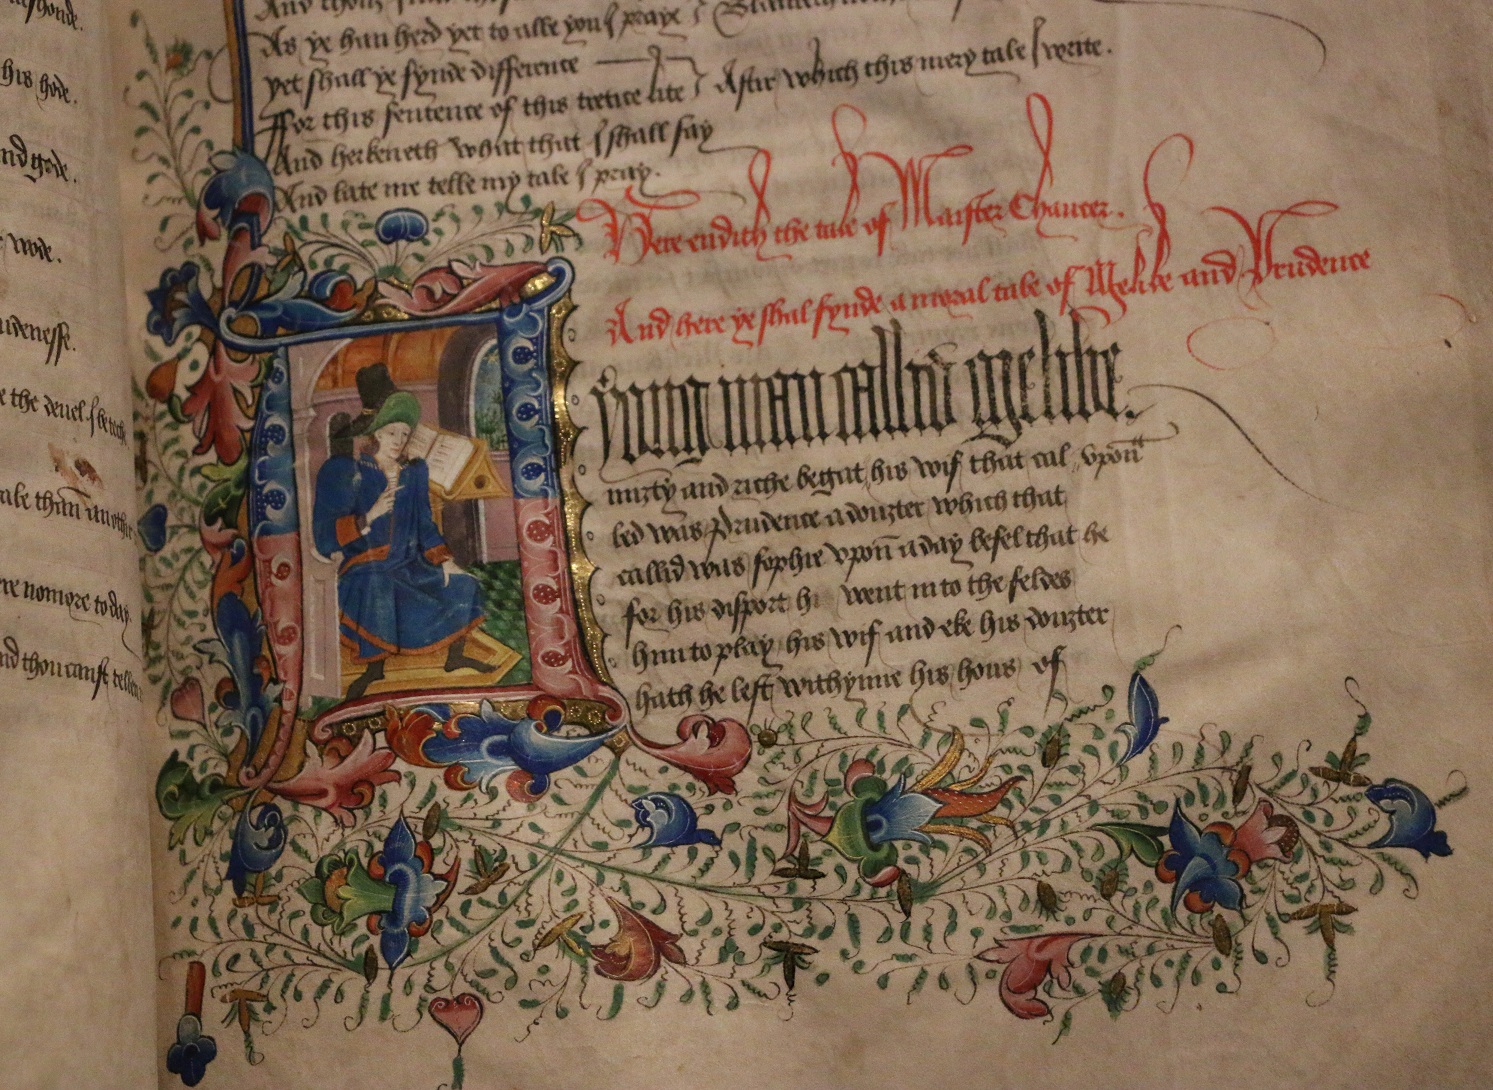 shonde.
his hode.
nd gode.
wode.
idenesse.
e the deuel I beteche
ale than anothir
re nomore to day
nd thou canst tellen
As ye han herd yet to alle you I praye
yet shall ye fynde difference
ffor this sentence of this tretice lite Aftir which this mery tale I write.
And herkeneth what that I shall say
And late me telle my tale I pray.
Here endith the tale of Maister Chaucer.
And here ye shal fynde a moral tale of Melibe and Prudence
yong man callid Melibe
mizty and riche begat his wif that cal vpon
led was Prudence a douzter which that
callid was sophie vpon a day befel that he
for his disport he went in to the feldes
him to play his wif and eke his douzter
hath he left withynne his hous of